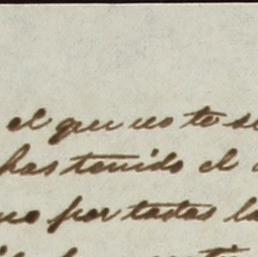 el que no te
has tenido el
por todas la